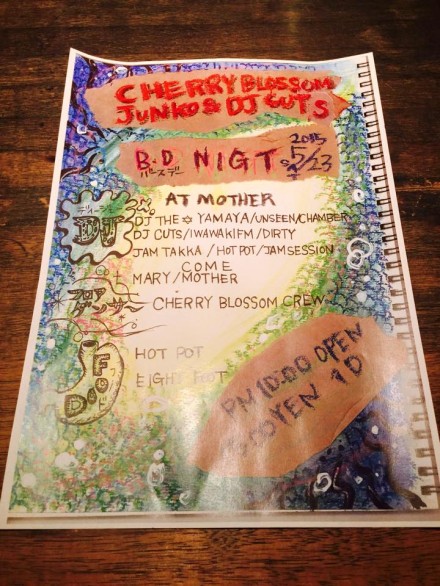 CHERRY BLOSSOM
JUNKO & DJ CUTS
B・D NIGT
バースデー
2015
5/23
AT MOTHER
DJ
DJ THE ✡ YAMAYA/UNSEEN/CHAMBER
DJ CUTS/IWAWAKIFM/DIRTY
JAM TAKKA / HOT POT/JAM SESSION
COME
MARY/MOTHER
フロア
ダンサー
CHERRY BLOSSOM CREW
FooD
HOT POT
EIGHT FOOT
PM 10:00 OPEN
YEN 1D